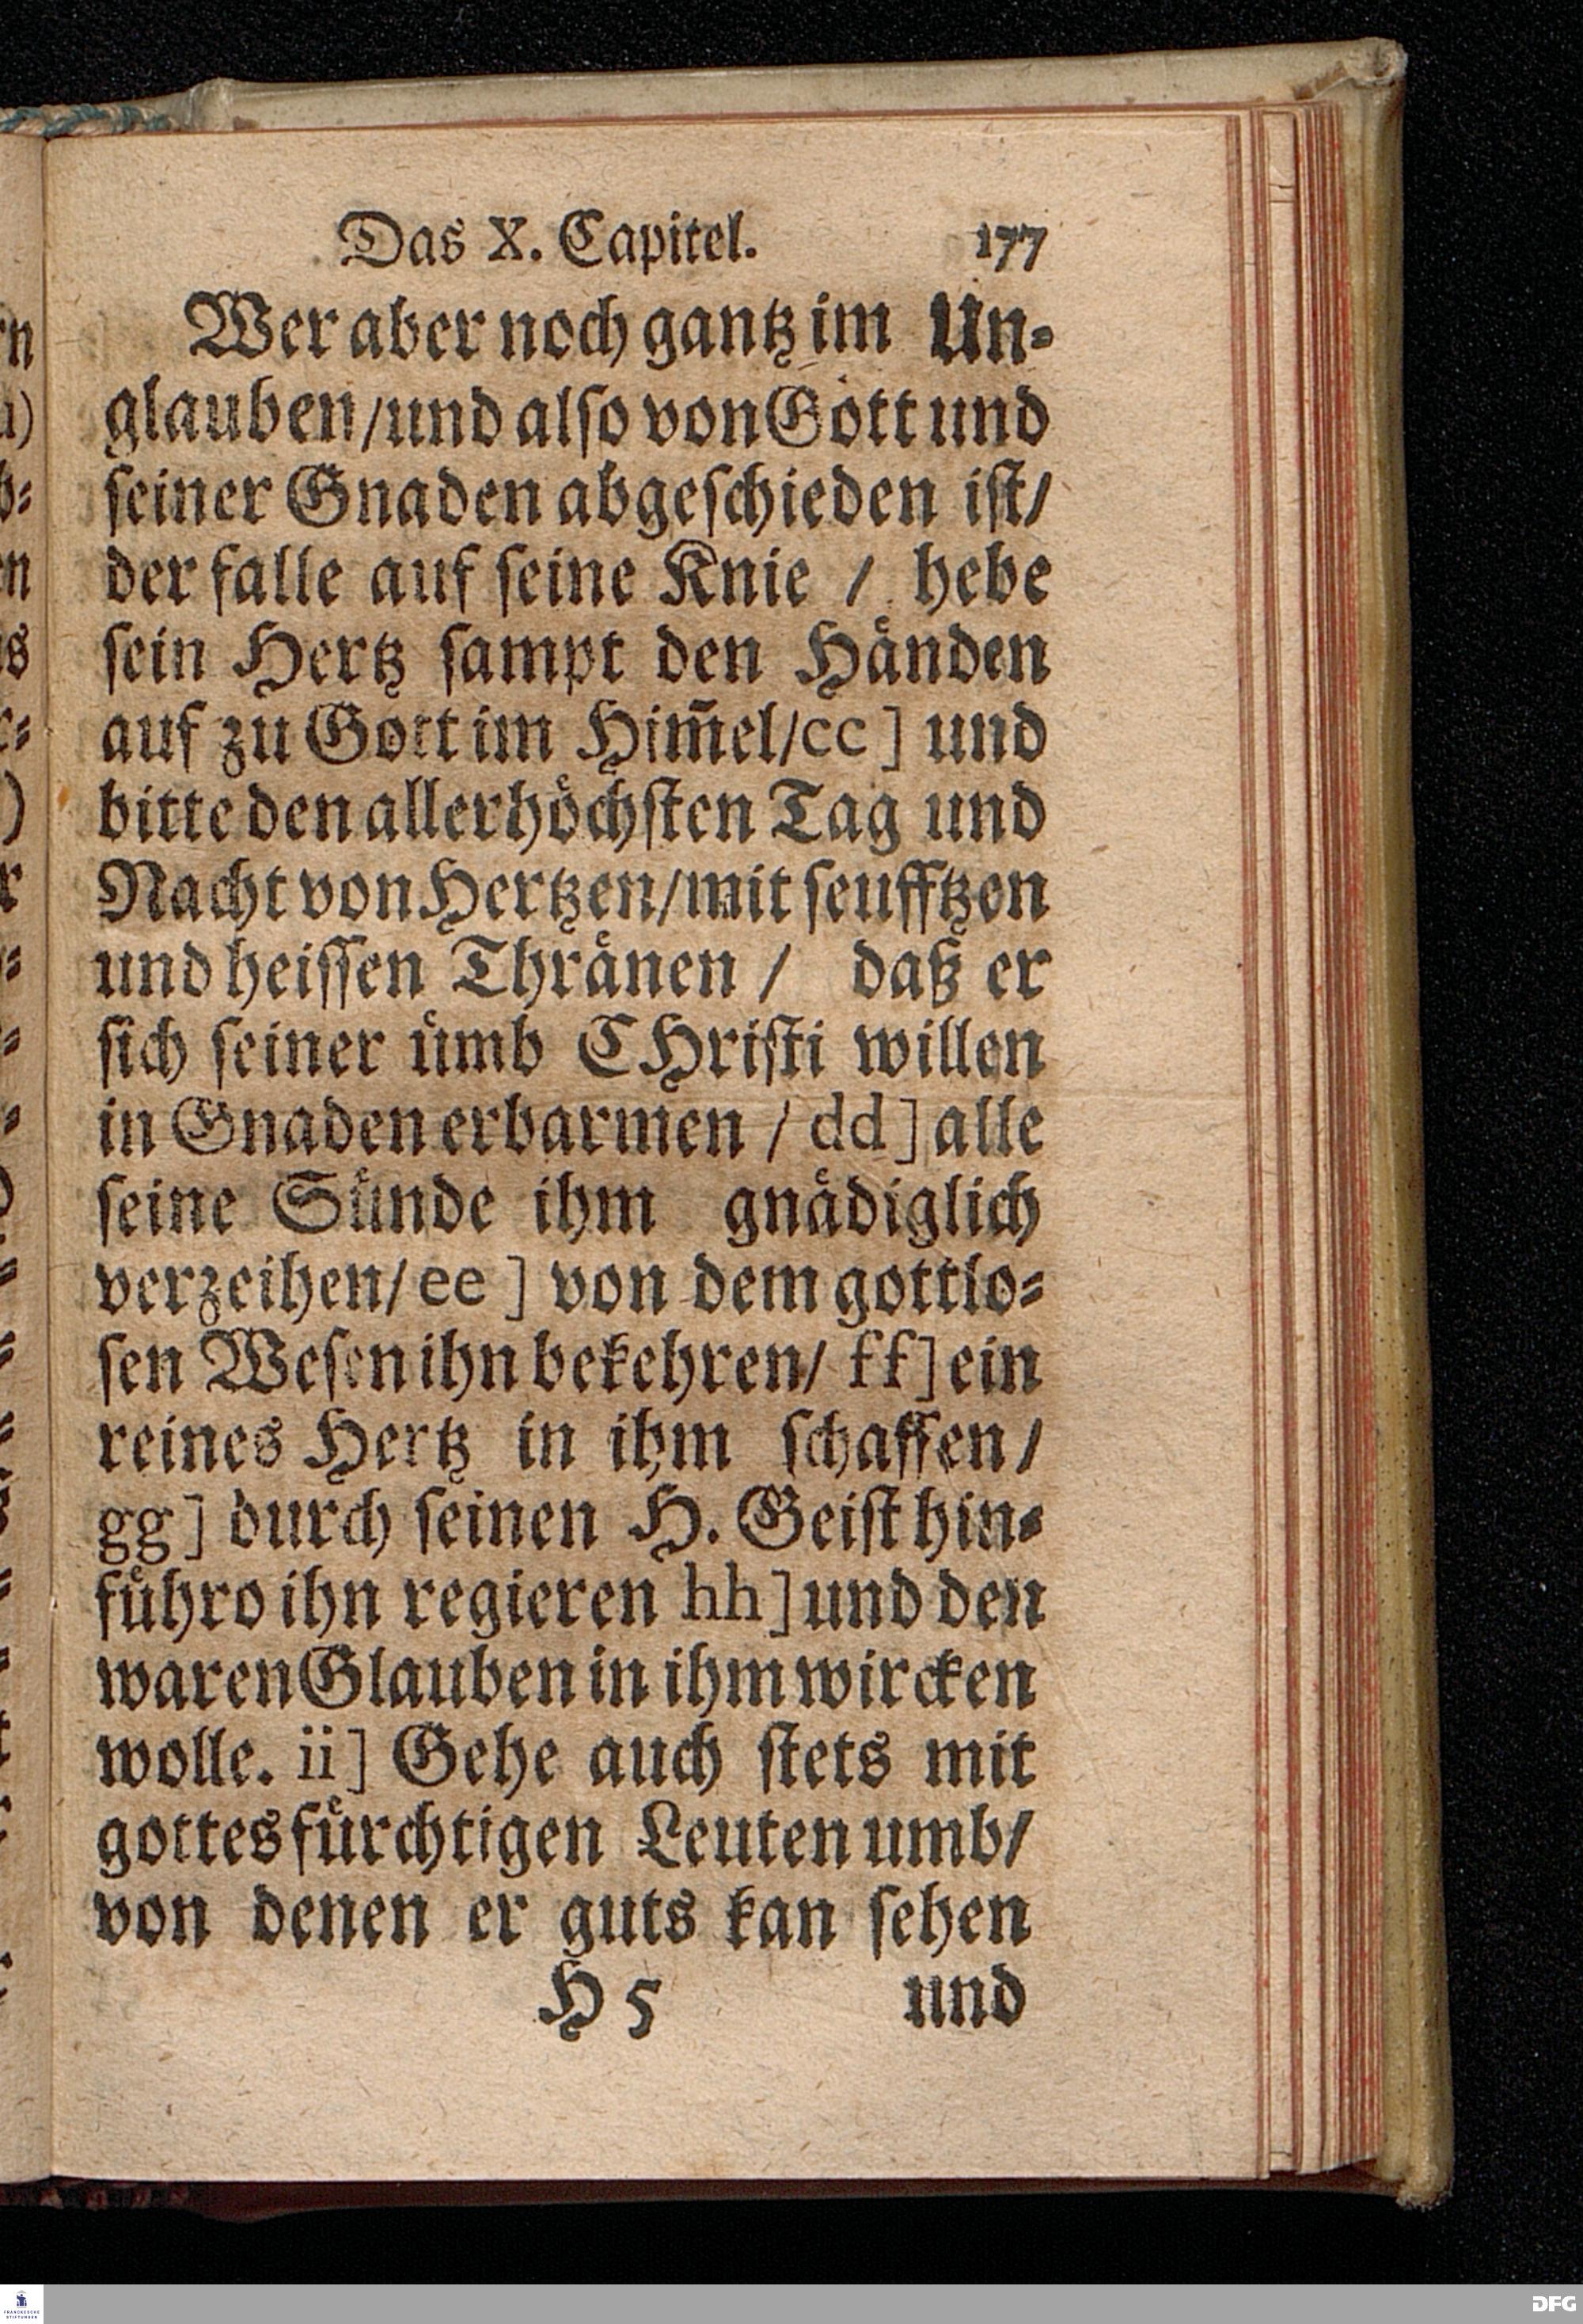 Das X. Capitel. 177
Wer aber noch gantz im Un⸗
glauben/und also von Gott und
seiner Gnaden abgeschieden ist/
der falle auf seine Knie / hebe
sein Hertz sampt den Händen
auf zu Gott im Him̄el/cc] und
bitte den allerhöchsten Tag und
Nacht von Hertzen/mit seufftzen
und heissen Thränen / daß er
sich seiner ümb CHristi willen
in Gnaden erbarmen / dd] alle
seine Sünde ihm gnädiglich
verzeihen/ ee ] von dem gottlo⸗
sen Wesen ihn bekehren/ ff] ein
reines Hertz in ihm schaffen/
gg] durch seinen H. Geist hin⸗
führo ihn regieren hh] und den
waren Glauben in ihm wircken
wolle. ii] Gehe auch stets mit
gottesfürchtigen Leuten umb/
von denen er guts kan sehen
H 5 und
FRANCKESCHE
STIFTUNGEN
DFG